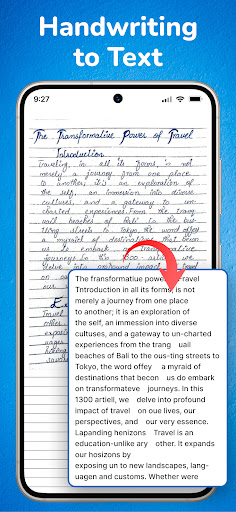 Handwriting
to Text
9:27
The Transformative Power of Travel
Introduction
Traveling in all its forms, is not
merely a journey from one place
to another, it is an exploration of
the self, an immersion into diverse
cultures, and a gateway to un-
charted experiences. From the tranq
uail beaches of Bali to the bus-
tling streets to Tokyo, the word offey
a myraid of destinations that becon
us to embark on transformative
journeys. In this 1000 articel, we
delve into profound impact
Travel
other
The transformatiue power Travel
Tntroduction in all its forms, is not
merely a journey from one place
to another; it is an exploration of
the self, an immession into diverse
cultures, and a gateway to un-charted
experiences from the trang uail
beaches of Bali to the ous-ting streets to
Tokyo, the word offey a myraid of
destinations that becon us do embark
on transformateve journeys. In this
1300 artiell, we delve into profound
impact of travel on oue lives, our
perspectives, and our very essence.
Lapanding henizons Travel is an
education-unlike ary other. It expands
our hosizons by
exposing un to new landscapes, lang-
uagen and customs. Whether were